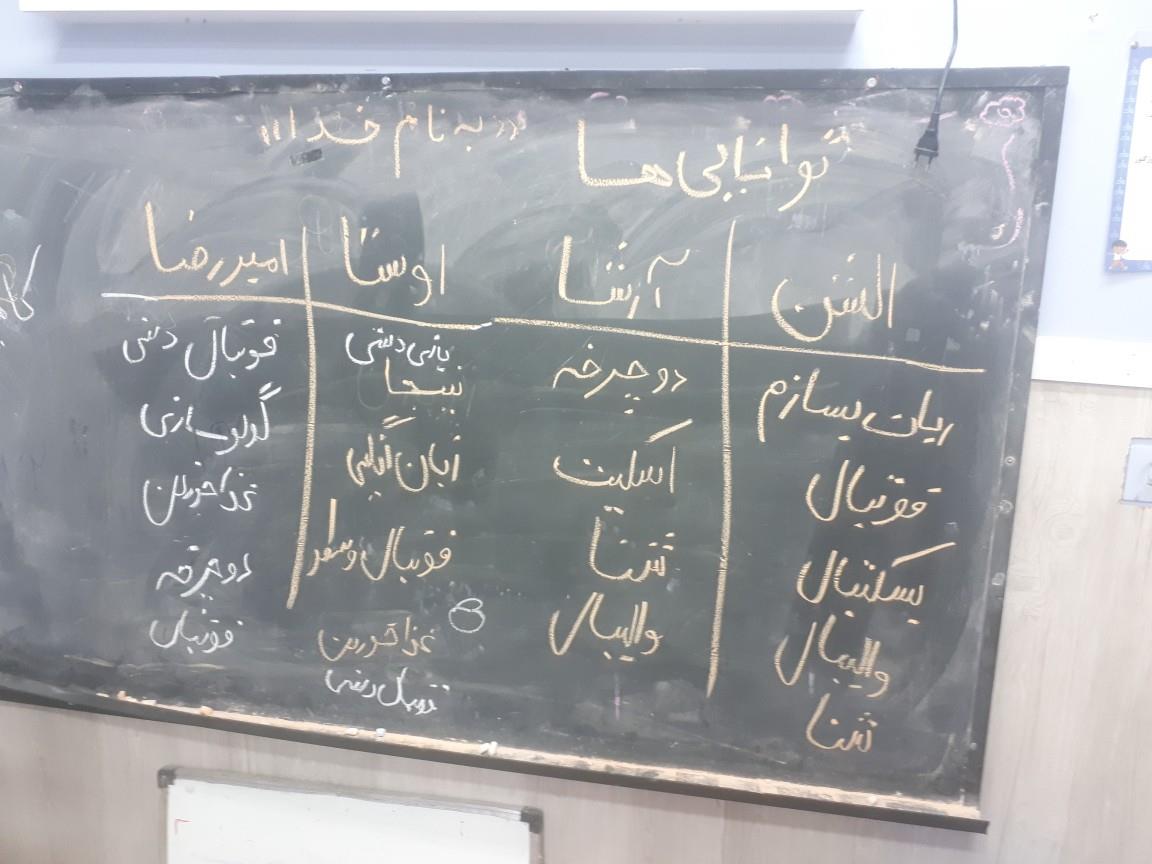 «به نام خدا»
توانایی ها
الشن
ربات بسازم
فوتبال
بسکتبال
والیبال
شنا
آرشا
دوچرخه
اسکیت
شنا
والیبال
اوستا
بازی دستی
نینجا
فوتبال
غذا خوردن
فوتبال دستی
امیررضا
فوتبال دستی
غذا خوردن
دوچرخه
فوتبال